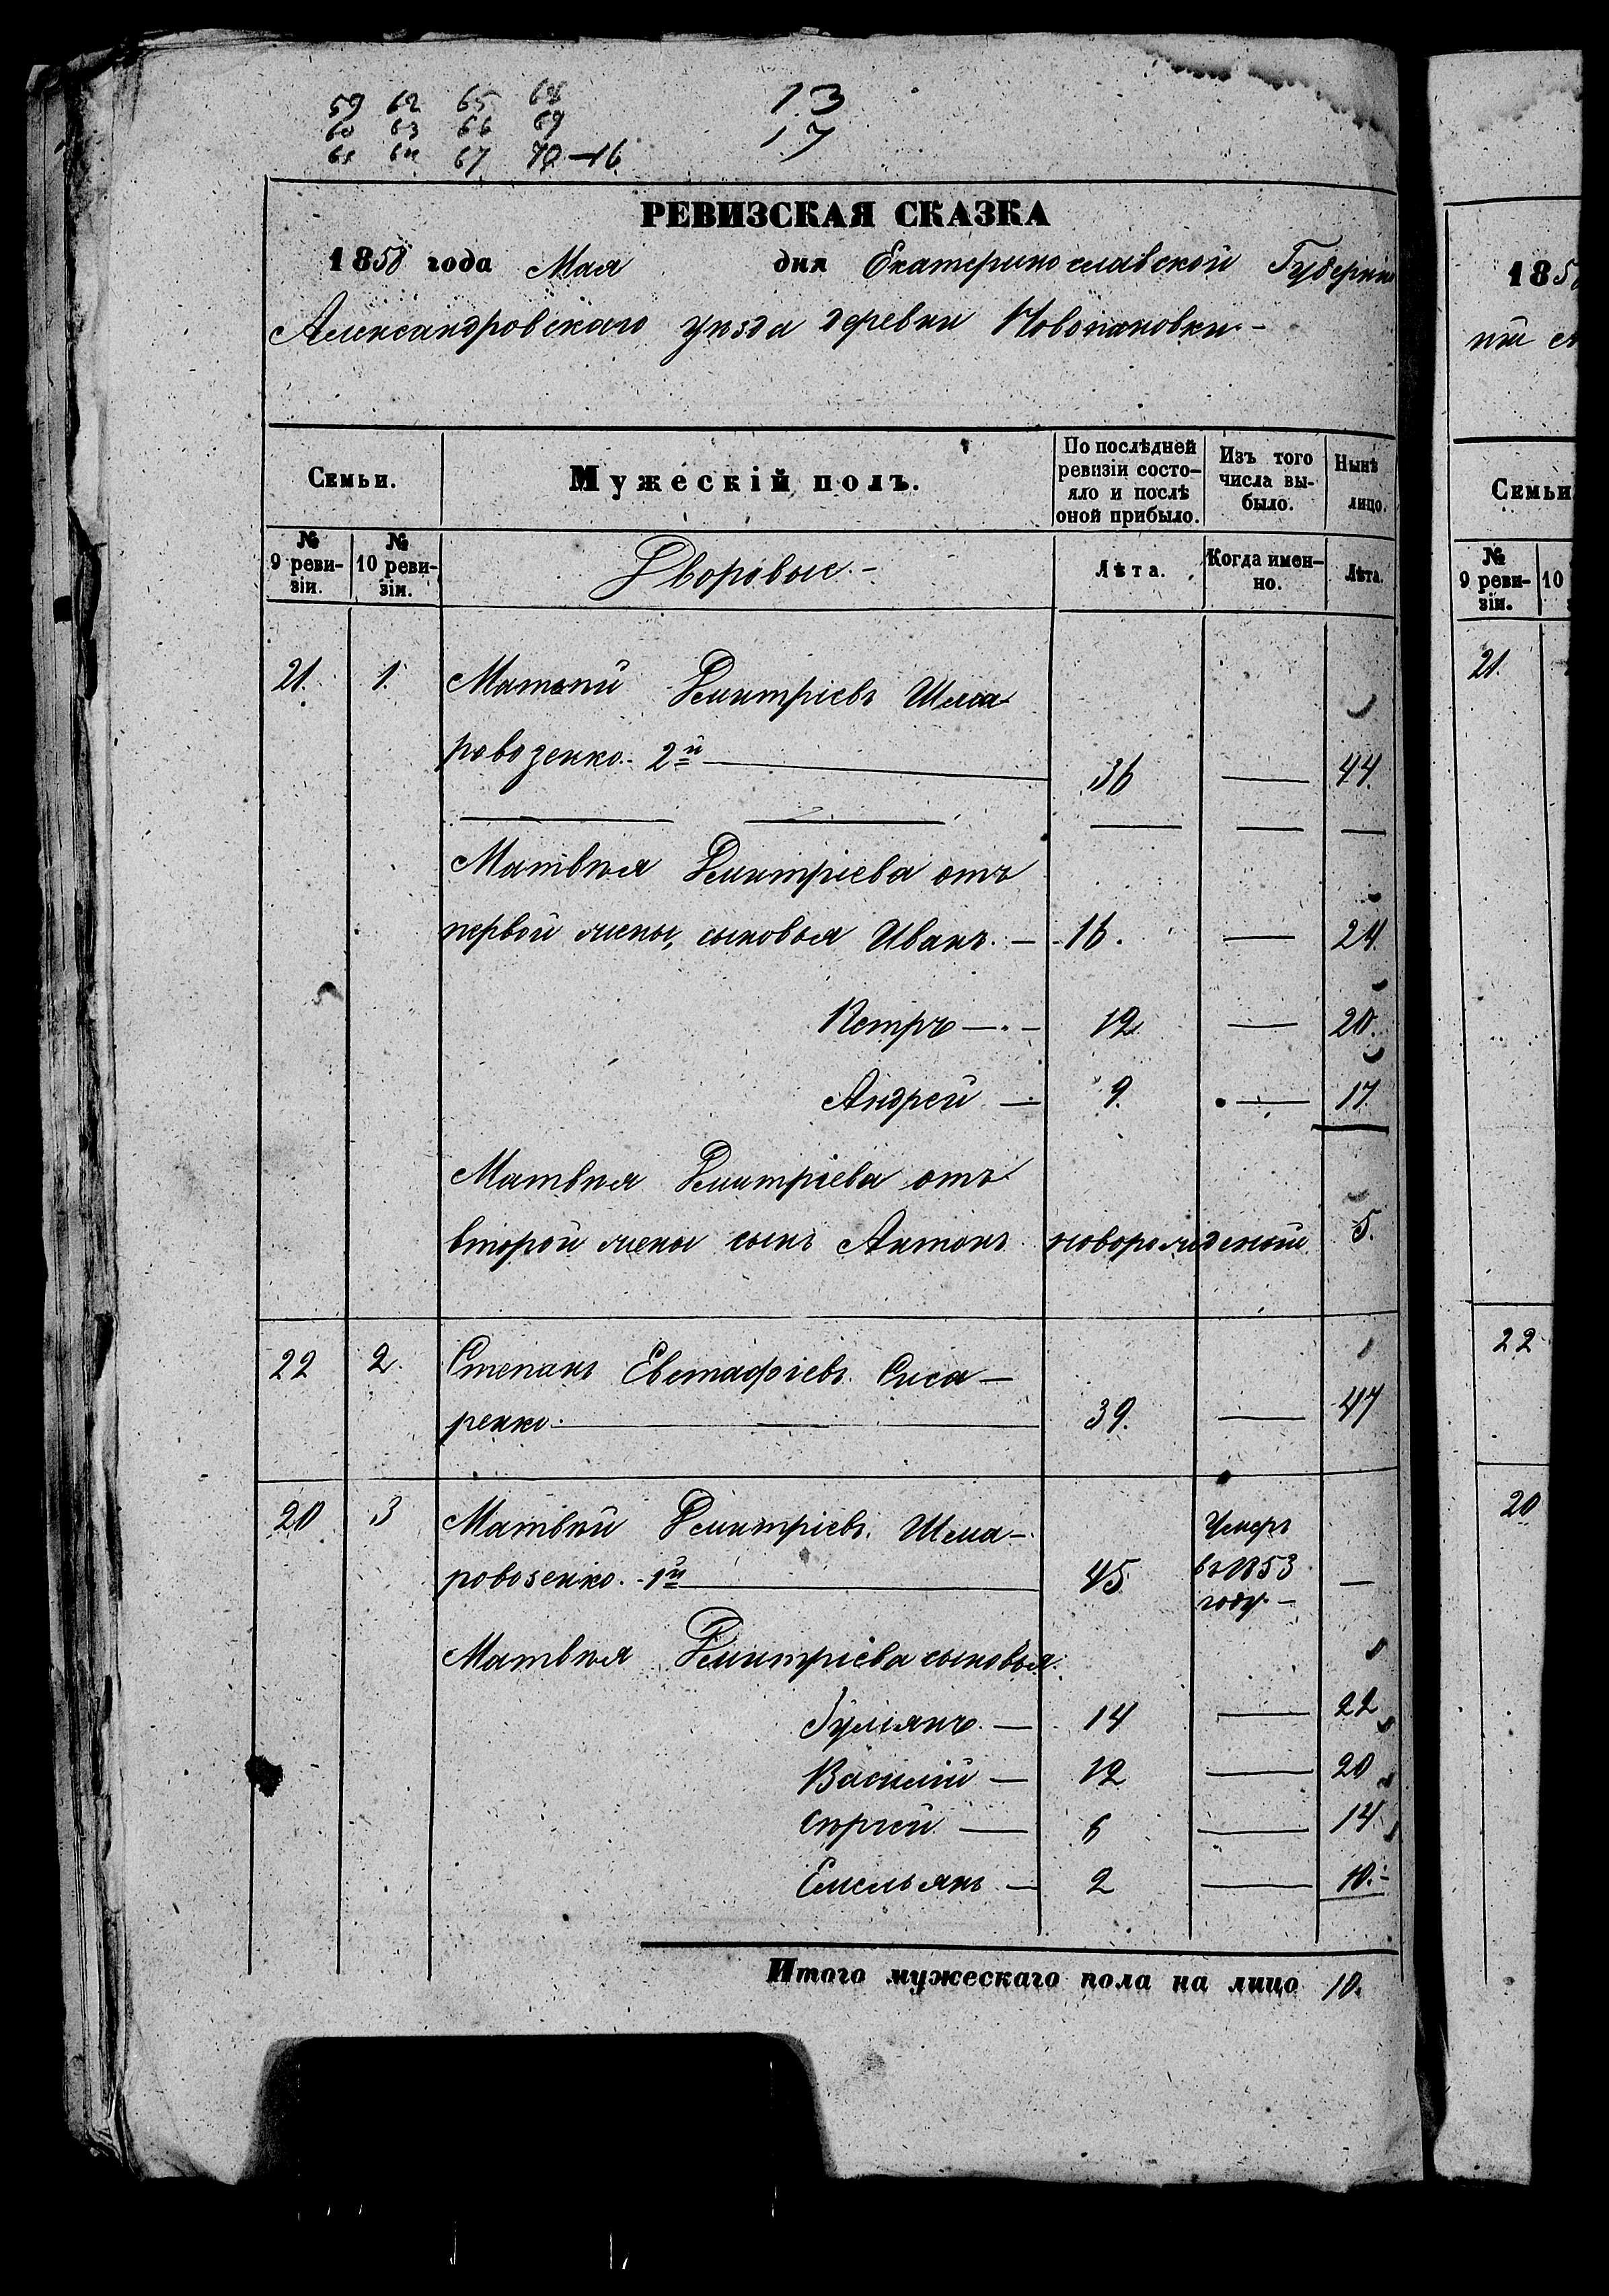 59 62 65 68
60 63 66 69
61 64 67 70—16
13
17
РЕВИЗСКАЯ СКАЗКА
1858 года Мая дня Екатеринославской Губерніи
Александровскаго уѣзда деревни
Семьи.
Мужескій полъ.
По послѣдней
ревизіи состо-
яло и послѣ
оной прибыло.
Изъ того
числа вы-
было.
Нынѣ
лицо.
№
9 реви-
зіи.
№
10 реви-
зіи.
Дворовые.-
Лѣта.
Когда имен-
но.
Лѣта.
21. 1. Матвѣй Дмитріевъ Шма
ровозенко. 2й 36 — 44.
Матвѣя Дмитріева отъ
первой жены, сыновья Иванъ. — 16. — 24.
Петръ — 12 — 20.
Андрей — 9. — 17
Матвѣя Дмитріева отъ
второй жены сынъ Антонъ новорожденный 5.
22 2 Степанъ Евстафіевъ Слюса-
ренко. 39. — 47
20 3 Матвѣй Дмитріевъ. Шма-
ровозенко. 1й 45 Умеръ
въ 1853
году. — —
Матвѣя Дмитріева сыновья.
Іуліянъ. — 14 — 22
Василій — 12 — 20
Сергѣй — 6 — 14.
Емельянъ — 2 — 10.-
Итого мужескаго пола на лицо 10.
185
Семьи
№
9 реви-
зіи.
10
21.
22
20